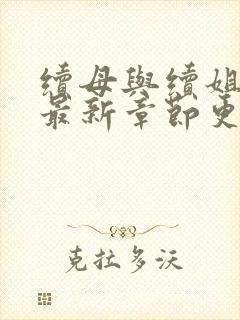 續母與續姐
最新章節更
克拉多沃